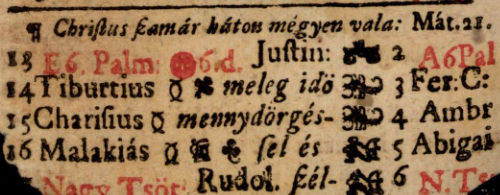 ¶ Chriſtus ſzamár háton mégyen vala: Mát. 21.
13 E6. Palm: 6.d. Juſtin: 2 A6Pal
14 Tiburtius ☿ meleg idö 3 Fer: C:
15 Chariſius ☿ mennydörgés- 4 Ambr
16 Malakiás ☿ ſel és 5 Abigai
Nagy Tsöt: Rudol. ſzél- 6 N. Ts